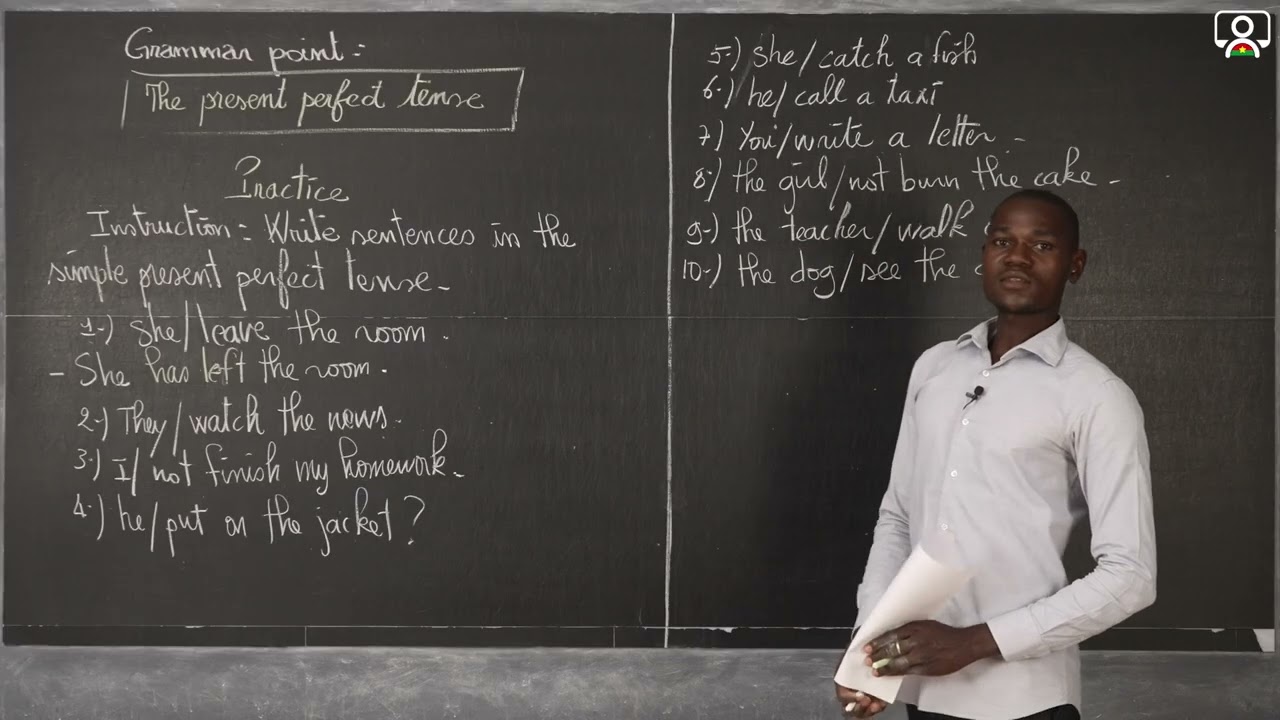 Grammar point:-
The present perfect tense
Practice
Instruction: Write sentences in the
simple present perfect tense-
1-) she/leave the room.
- She has left the room.
2-) They/watch the news.
3-) I/not finish my homework-
4-) he/put on the jacket?
5-) she/catch a fish
6-) he/call a taxi
7) You/write a letter.-
8-) the girl/not burn the cake-
9-) the teacher/walk
10-) the dog/see the